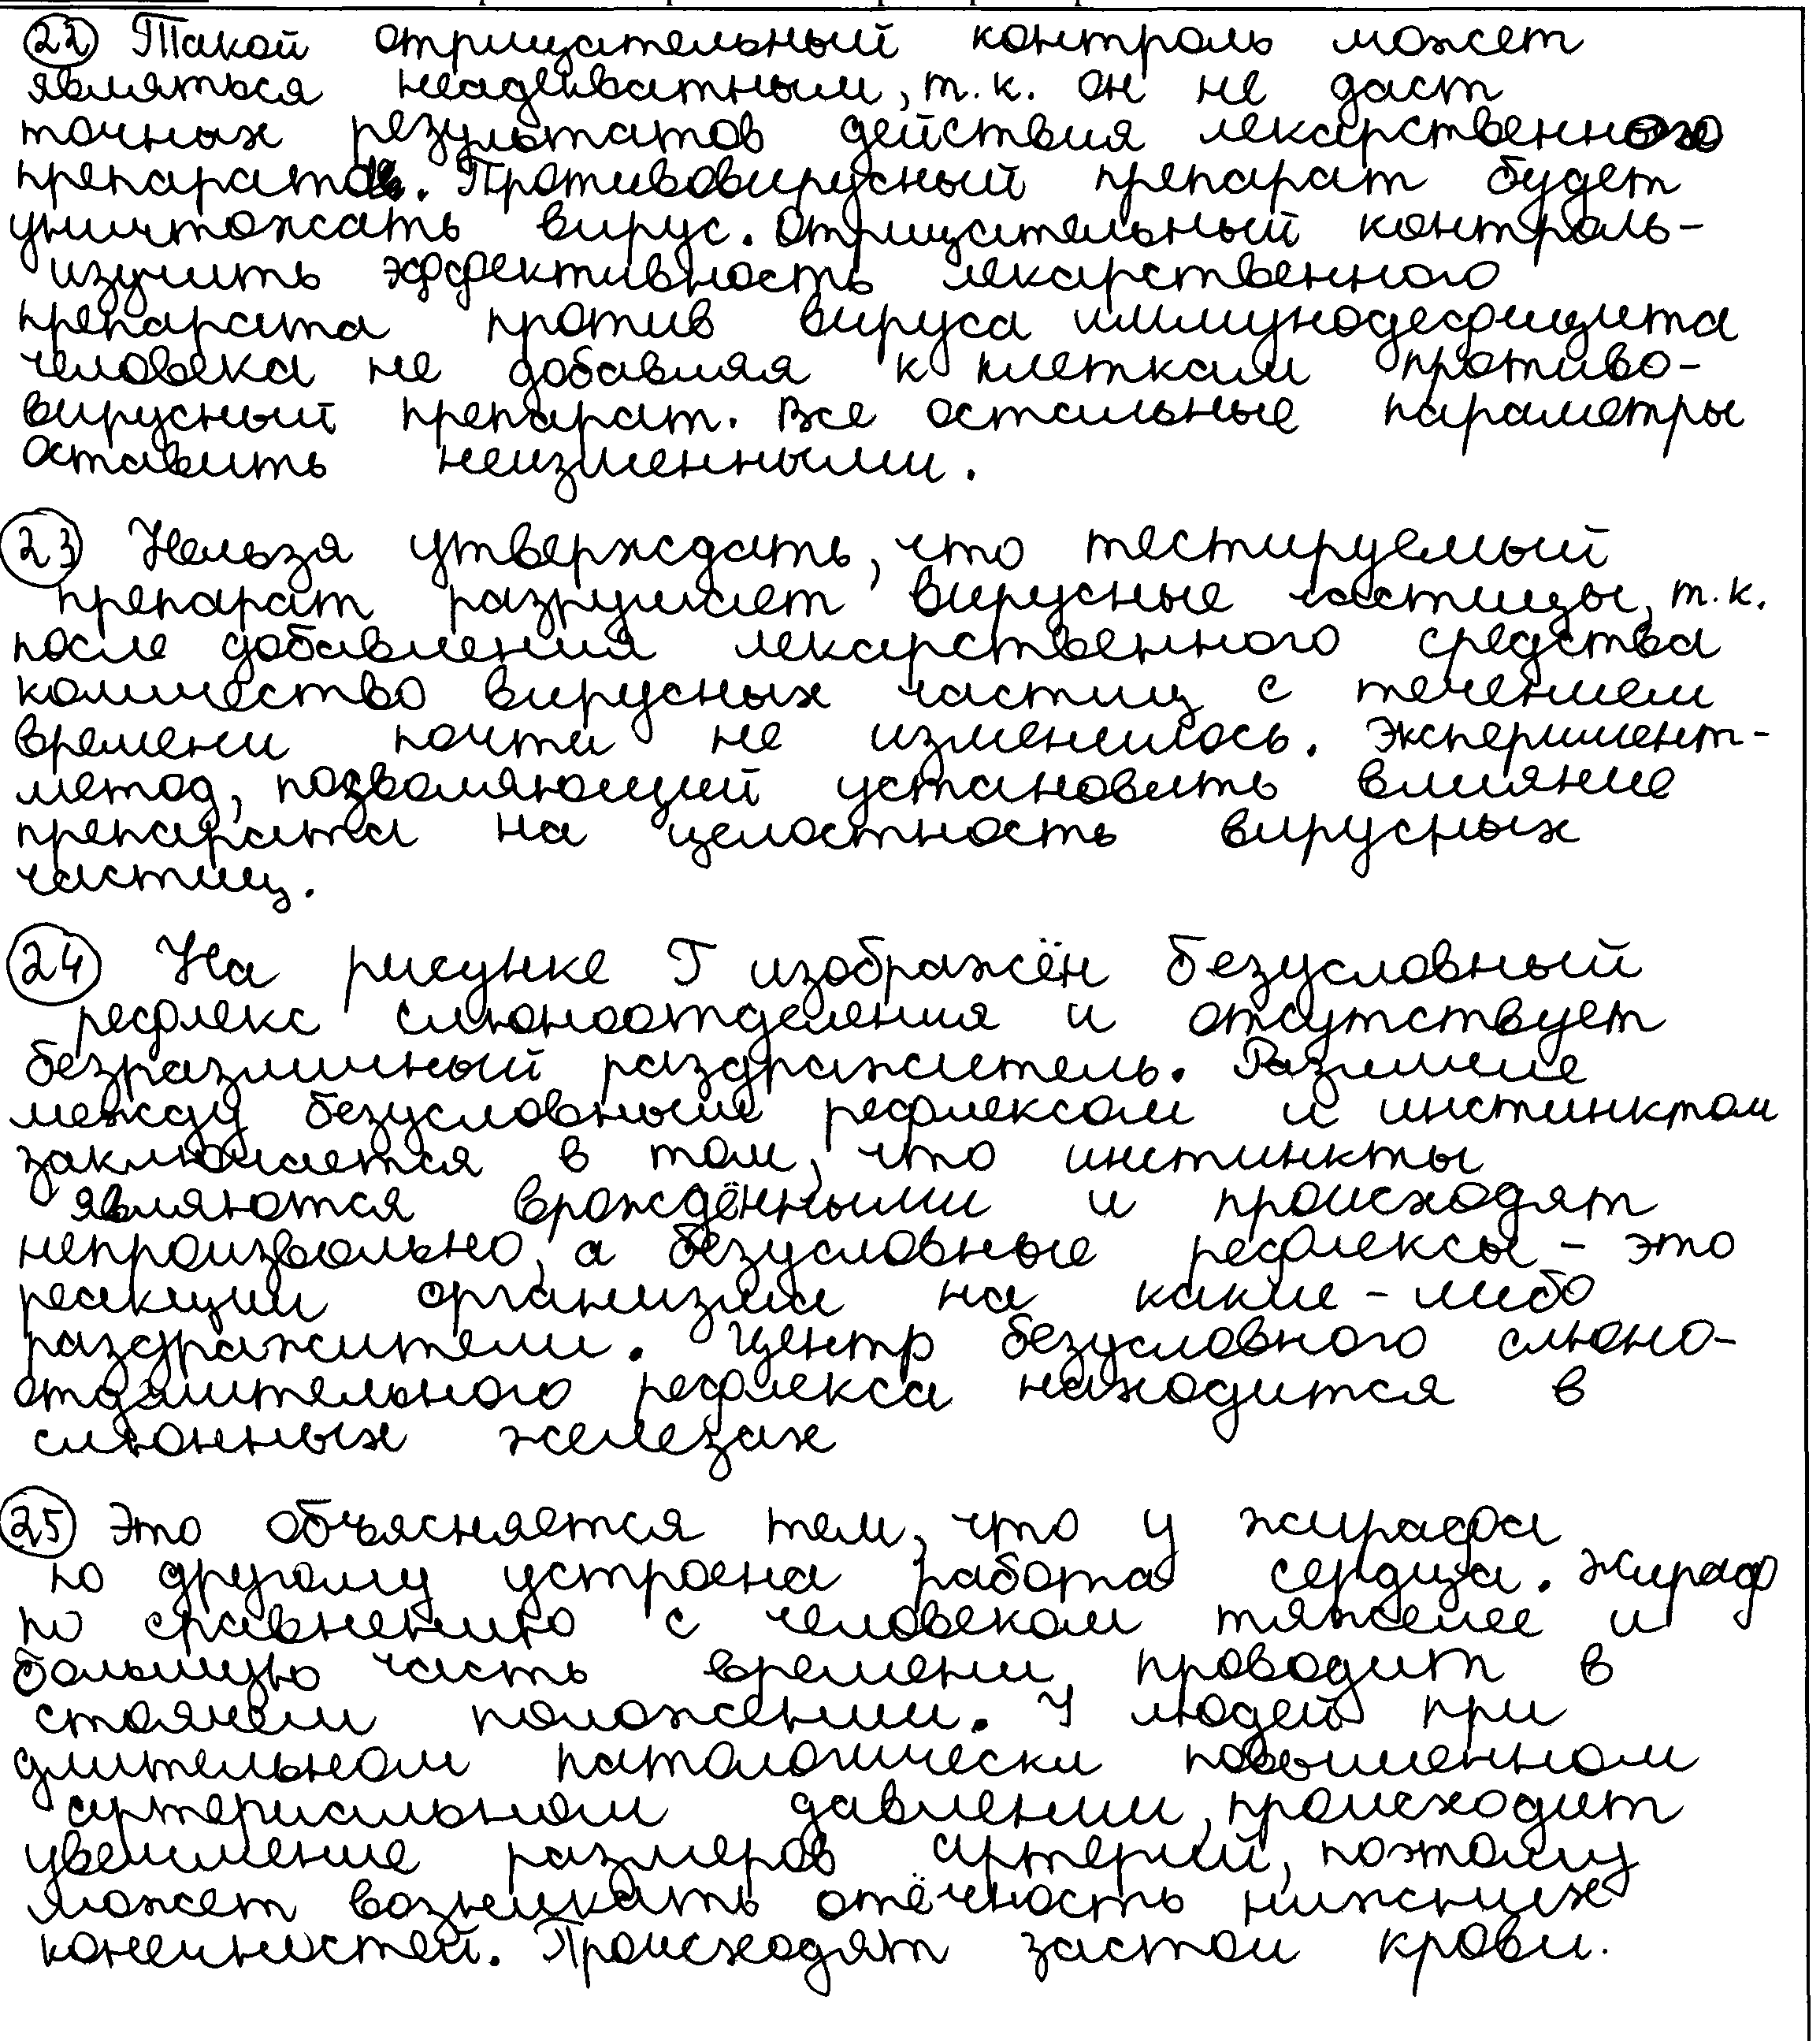 22 Такой отрицательный контроль может
являться неадекватным, т.к. он не даст
точных результатов действия лекарственного
препарата. Противовирусный препарат будет
уничтожать вирус. Отрицательный контроль-
изучить эффективность лекарственного
препарата против вируса иммунодефицита
человека не добавляя к клеткам противо-
вирусный препарат. Все остальные параметры
оставить неизменными.
23 Нельзя утверждать, что тестируемый
препарат разрушает вирусные частицы, т.к.
после добавления лекарственного средства
количество вирусных частиц с течением
времени почти не изменилось. Эксперимент-
метод, позволяющий установить влияние
препарата на целостность вирусных
частиц.
24 На рисунке Г изображён безусловный
рефлекс слюноотделения и отсутствует
безразличный раздражитель. Различие
между безусловным рефлексом и инстинктом
заключается в том, что инстинкты
являются врождёнными и происходят
непроизвольно, а безусловные рефлексы - это
реакции организма на какие-либо
раздражители. Центр безусловного слюно-
отделительного рефлекса находится в
слюнных железах
25 Это объясняется тем, что у жирафа
по другому устроена работа сердца. Жираф
по сравнению с человеком тяжелее и
большую часть времени проводит в
стоячем положении. У людей при
длительном патологически повышенном
артериальном давлении, происходит
увеличение размеров артерий, поэтому
может возникать отёчность нижних
конечностей. Происходят застои крови.